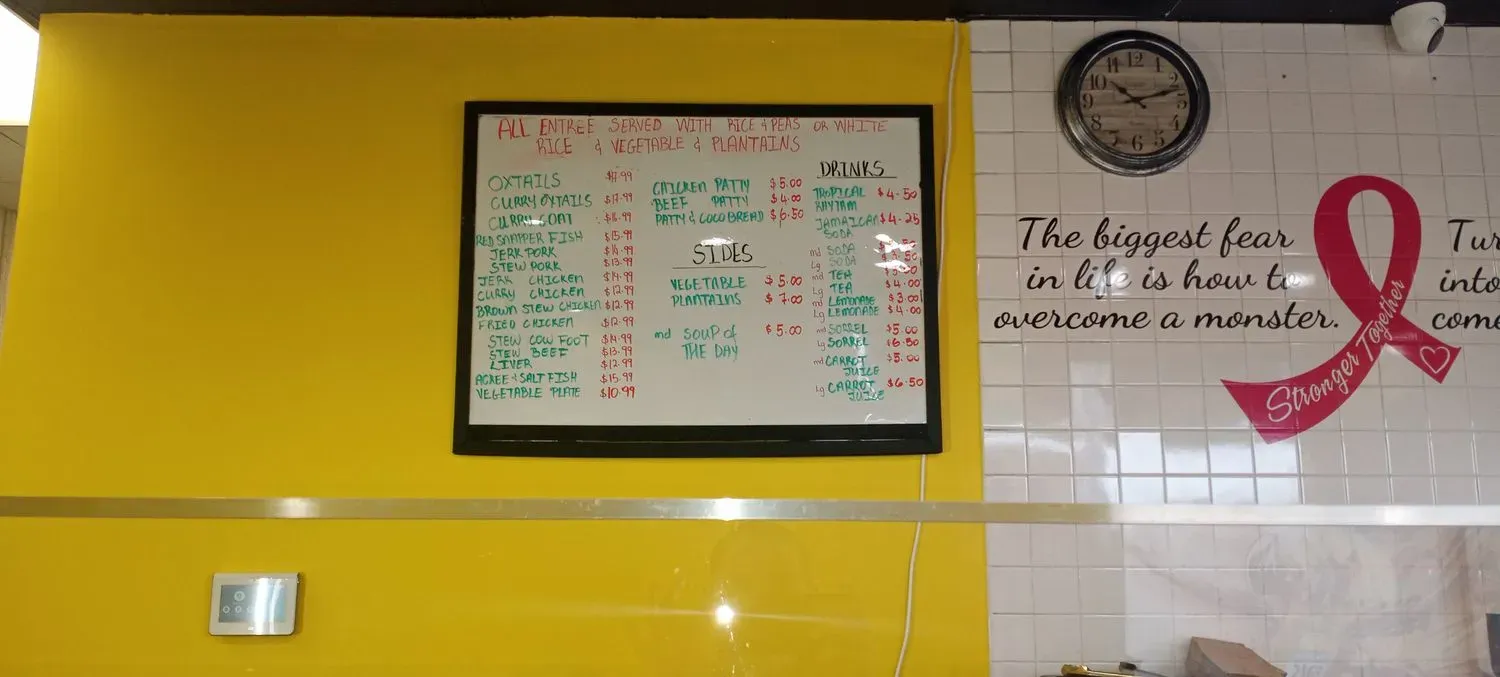 ALL ENTREE SERVED WITH RICE & PEAS OR WHITE
RICE & VEGETABLE & PLANTAINS
OXTAILS
CURRY OXTAILS $17.99
CURRY GOAT $16.99
RED SNAPPER FISH $15.99
JERK PORK $14.99
STEW PORK $13.99
JERK CHICKEN $14.99
CURRY CHICKEN $12.99
BROWN STEW CHICKEN $12.99
FRIED CHICKEN $12.99
STEW COW FOOT $14.99
STEW BEEF $13.99
LIVER $12.99
ACKEE & SALT FISH $15.99
VEGETABLE PLATE $10.99
CHICKEN PATTY $5.00
BEEF PATTY $4.00
PATTY & COCO BREAD $6.50
SIDES
VEGETABLE $5.00
PLANTAINS $7.00
md SOUP of $5.00
THE DAY
DRINKS
TROPICAL $4.50
RHYTHM
JAMAICAN $4.25
SODA
md SODA
Lg SODA
md TEA
Lg TEA $4.00
md LEMONADE $3.00
Lg LEMONADE $4.00
md SORREL $5.00
Lg SORREL $6.50
md CARROT $5.00
JUICE
Lg CARROT $6.50
JUICE
11 12 1
10 2
9 3
8 4
7 6 5
The biggest fear
in life is how to
overcome a monster.
Stronger Together
Tur
into
come